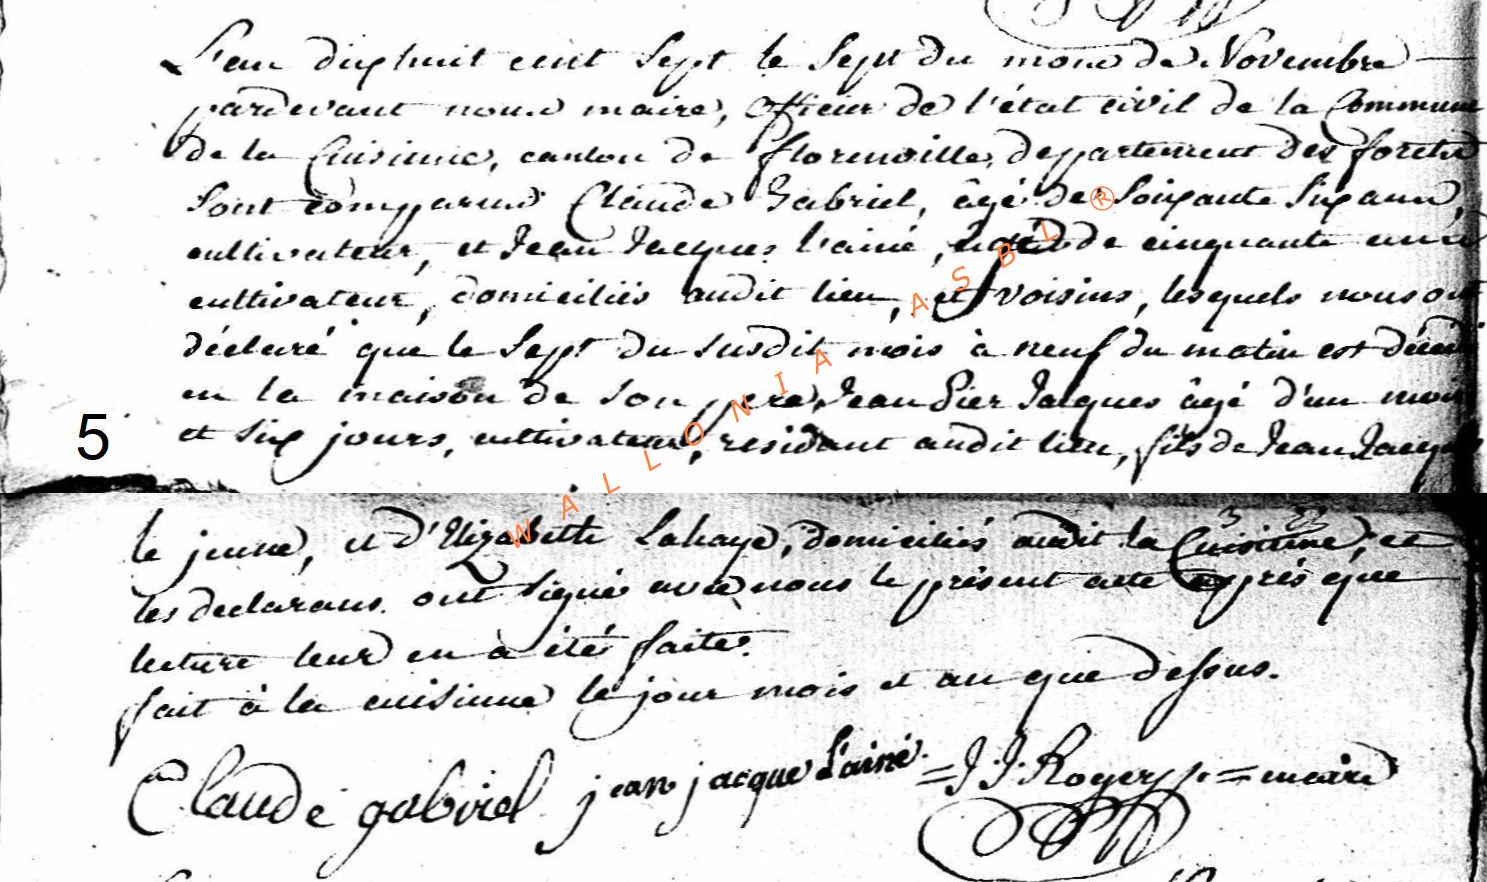 L'an dixhuit cent Sept le Sept du mois de Novembre
pardevant nous maire, officier de l'état civil de la Commune
de la Cuisinne, canton de florenville, departement des forets
Sont comparus Claude Gabriel, âgé de Soixante Six ans,
cultivateur, et Jean Jacques l'ainé, âgé de cinquante ans
cultivateur, domiciliés audit lieu, et voisins, lesquels nous ont
déclaré que le Sept du susdit mois à neuf du matin est décédé
en la maison de son pere, Jean Pier Jacques âgé d'un mois
et Six jours, cultivateur, residant audit lieu, fils de Jean Jacques
5
le jeune, et d'Elizabeth Lahaye, domiciliés audit la Cuisinne, et
les declarans ont signé avec nous le présent acte après que
lecture leur en a été faite.
fait à la cuisinne le jour mois et an que dessus.
Claude gabriel jean jacque L'ainé = J J Roger = maire
WALLONIA ASBL ®